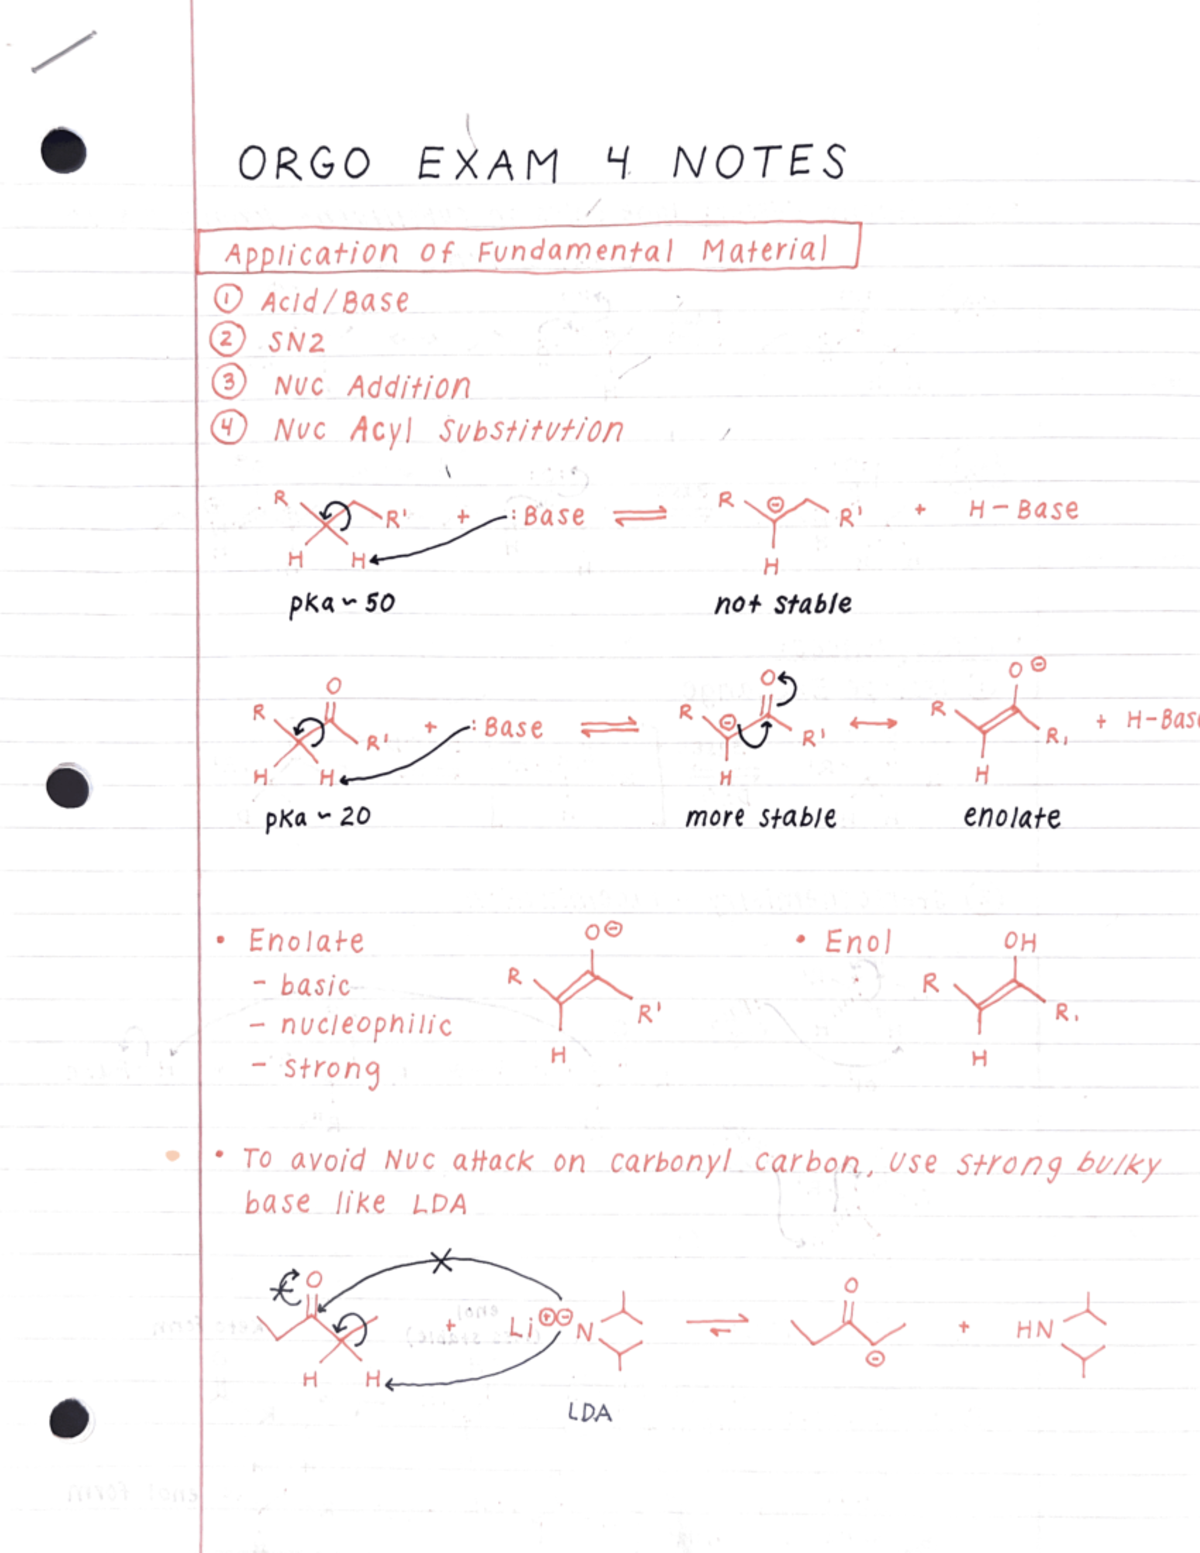 ORGO EXAM 4 NOTES
Application of Fundamental Material
① Acid/Base
② SN2
③ Nuc Addition
④ Nuc Acyl Substitution
R R' H H + :Base ⇌ R ⊖ R' H + H-Base
pKa ~ 50 not stable
O R R' H H + :Base ⇌ O R ⊖ R' H ↔ O⊖ R R, H + H-Base
pKa ~ 20 more stable enolate
• Enolate O⊖ R R' H • Enol OH R R, H
- basic
- nucleophilic
- strong
• To avoid Nuc attack on carbonyl carbon, use strong bulky
base like LDA
O H H + Li⊕ ⊖N ⇌ O ⊖ + HN
LDA